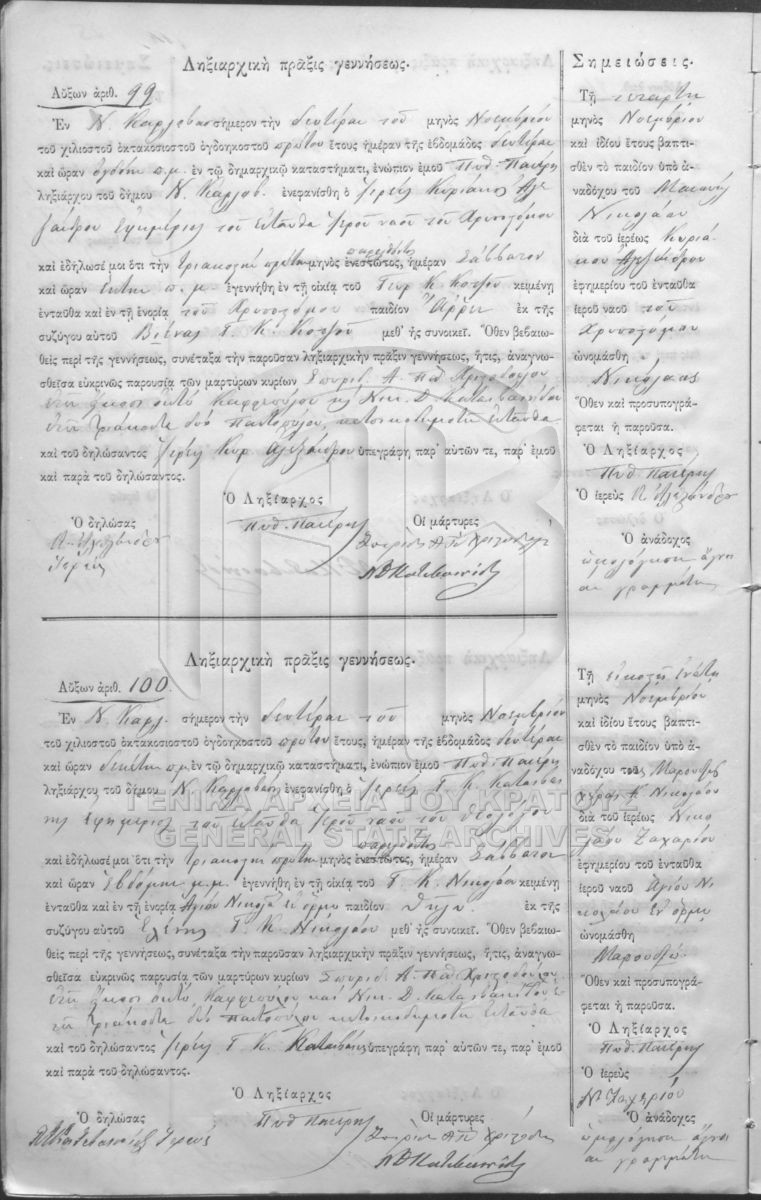 Ληξιαρχικὴ πρᾶξις γεννήσεως.
Αὔξων ἀριθ. 99
Ἐν Ν. Καρλοβασ σήμερον τὴν δευτέραν τοῦ μηνὸς Νοεμβρίου
τοῦ χιλιοστοῦ ὀκτακοσιοστοῦ ὀγδοηκοστοῦ πρώτου ἔτους ἡμέραν τῆς ἑβδομάδος δευτέραν
καὶ ὥραν ὀγδόην π.μ. ἐν τῷ δημαρχικῷ καταστήματι, ἐνώπιον ἐμοῦ Πυθ. Πατέρη
ληξιάρχου τοῦ δήμου Ν. Καρλοβ. ἐνεφανίσθη ὁ Ἱερεὺς Κυριακὸς Ἀλε
ξάνδρου Ἐφημέριος τοῦ ἐνταῦθα Ἱεροῦ ναοῦ τοῦ Χρυσοστόμου
καὶ ἐδήλωσέ μοι ὅτι τὴν τριακοστὴν πρώτην μηνὸς ἐνεστῶτος, παρελθόντος ἡμέραν Σάββατον
καὶ ὥραν ἕκτην π.μ. ἐγεννήθη ἐν τῇ οἰκίᾳ τοῦ Γεωρ Κ. κειμένῃ
ἐνταῦθα καὶ ἐν τῇ ἐνορίᾳ τοῦ Χρυσοστόμου παιδίον Ἄρρεν ἐκ τῆς
συζύγου αὐτοῦ Γ. Κ. μεθ' ἧς συνοικεῖ. Ὅθεν βεβαιω-
θεὶς περὶ τῆς γεννήσεως, συνέταξα τὴν παροῦσαν ληξιαρχικὴν πρᾶξιν γεννήσεως, ἥτις, ἀναγνω-
σθεῖσα εὐκρινῶς παρουσίᾳ τῶν μαρτύρων κυρίων Σπυριδ. Α. Πα Χριστοδούλου
ἐτῶν εἴκοσι ὀκτὼ Καφφεπώλου καὶ Νικ. Δ. Καταιβαινίδου
ἐτῶν τριάκοντα δύο Παντοπώλου, κατοικοδημότων ἐνταῦθα
καὶ τοῦ δηλώσαντος Ἱερέως Κυρ. Ἀλεξάνδρου ὑπεγράφη παρ' αὐτῶν τε, παρ' ἐμοῦ
καὶ παρὰ τοῦ δηλώσαντος.
Ὁ δηλώσας
Κ. Ἀλεξάνδρου
Ἱερεὺς
Ὁ Ληξίαρχος
Πυθ. Πατέρης
Οἱ μάρτυρες
Σπυρίδων Α Πα Χριστοδούλου
Ν Δ Καταιβαινίδης
Σημειώσεις.
Τῇ τετάρτῃ
μηνὸς Νοεμβρίου
καὶ ἰδίου ἔτους βαπτι-
σθὲν τὸ παιδίον ὑπὸ ἀ-
ναδόχου τοῦ Μανουὴλ
Νικολάου
διὰ τοῦ ἱερέως Κυρια-
κοῦ Ἀλεξάνδρου
ἐφημερίου τοῦ ἐνταῦθα
ἱεροῦ ναοῦ τοῦ
Χρυσοστόμου
ὠνομάσθη
Νικόλαος
Ὅθεν καὶ προσυπογρά-
φεται ἡ παροῦσα.
Ὁ Ληξίαρχος
Πυθ. Πατέρης
Ὁ ἱερεὺς Κ. Ἀλεξάνδρου
Ὁ ἀνάδοχος
ὡμολόγησεν ἄγνοι
αν γραμμάτων
Ληξιαρχικὴ πρᾶξις γεννήσεως.
Αὔξων ἀριθ. 100.
Ἐν Ν. Καρλ. σήμερον τὴν δευτέραν τοῦ μηνὸς Νοεμβρίου
τοῦ χιλιοστοῦ ὀκτακοσιοστοῦ ὀγδοηκοστοῦ πρώτου ἔτους, ἡμέραν τῆς ἑβδομάδος δευτέραν
καὶ ὥραν δεκάτην π.μ. ἐν τῷ δημαρχικῷ καταστήματι, ἐνώπιον ἐμοῦ Πυθ. Πατέρη
ληξιάρχου τοῦ δήμου Ν. Καρλοβασ ἐνεφανίσθη ὁ Ἱερεὺς Γ. Κ. Καταιβαι
νης Ἐφημέριος τοῦ ἐνταῦθα Ἱεροῦ ναοῦ τοῦ Θεολόγου
καὶ ἐδήλωσέ μοι ὅτι τὴν τριακοστὴν πρώτην μηνὸς ἐνεστῶτος, παρελθόντος ἡμέραν Σάββατον
καὶ ὥραν ἑβδόμην μ.μ. ἐγεννήθη ἐν τῇ οἰκίᾳ τοῦ Γ. Κ. Νικολάου κειμένῃ
ἐνταῦθα καὶ ἐν τῇ ἐνορίᾳ Ἁγίου Νικολά ἐν ὅρμῳ παιδίον Θῆλυ. ἐκ τῆς
συζύγου αὐτοῦ Ἑλένης Γ. Κ. Νικολάου μεθ' ἧς συνοικεῖ. Ὅθεν βεβαιω-
θεὶς περὶ τῆς γεννήσεως, συνέταξα τὴν παροῦσαν ληξιαρχικὴν πρᾶξιν γεννήσεως, ἥτις, ἀναγνω-
σθεῖσα εὐκρινῶς παρουσίᾳ τῶν μαρτύρων κυρίων Σπυριδ. Α. Πα Χριστοδούλου
ἐτῶν εἴκοσι ὀκτώ, Καφφεπώλου καὶ Νικ. Δ. Καταιβαινίδου ἐ
τῶν τριάκοντα δύο παντοπώλου κατοικοδημότων ἐνταῦθα
καὶ τοῦ δηλώσαντος Ἱερέως Γ. Κ. Καταιβαίνη ὑπεγράφη παρ' αὐτῶν τε, παρ' ἐμοῦ
καὶ παρὰ τοῦ δηλώσαντος.
Ὁ δηλώσας
Ἱερεὺς
Ὁ Ληξίαρχος
Πυθ Πατέρης
Οἱ μάρτυρες
Σπυρίδων Α Πα Χριστοδούλου
Ν Δ Καταιβαινίδης
Τῇ εἰκοστῇ ἐνάτῃ
μηνὸς Νοεμβρίου
καὶ ἰδίου ἔτους βαπτι-
σθὲν τὸ παιδίον ὑπὸ ἀ-
ναδόχου τοῦ
Κ. Νικολάου
διὰ τοῦ ἱερέως Νικο
λάου Ζαχαρίου
ἐφημερίου τοῦ ἐνταῦθα
ἱεροῦ ναοῦ Ἁγίου Νι
κολάου ἐν ὅρμῳ
ὠνομάσθη
Μαρουδιώ.
Ὅθεν καὶ προσυπογρά-
φεται ἡ παροῦσα.
Ὁ Ληξίαρχος
Πυθ. Πατέρης
Ὁ ἱερεὺς
Ν. Ζαχαρίου
Ὁ ἀνάδοχος
ὡμολόγησεν ἄγνοι
αν γραμμάτων
ΓΕΝΙΚΑ ΑΡΧΕΙΑ ΤΟΥ ΚΡΑΤΟΥΣ
GENERAL STATE ARCHIVES